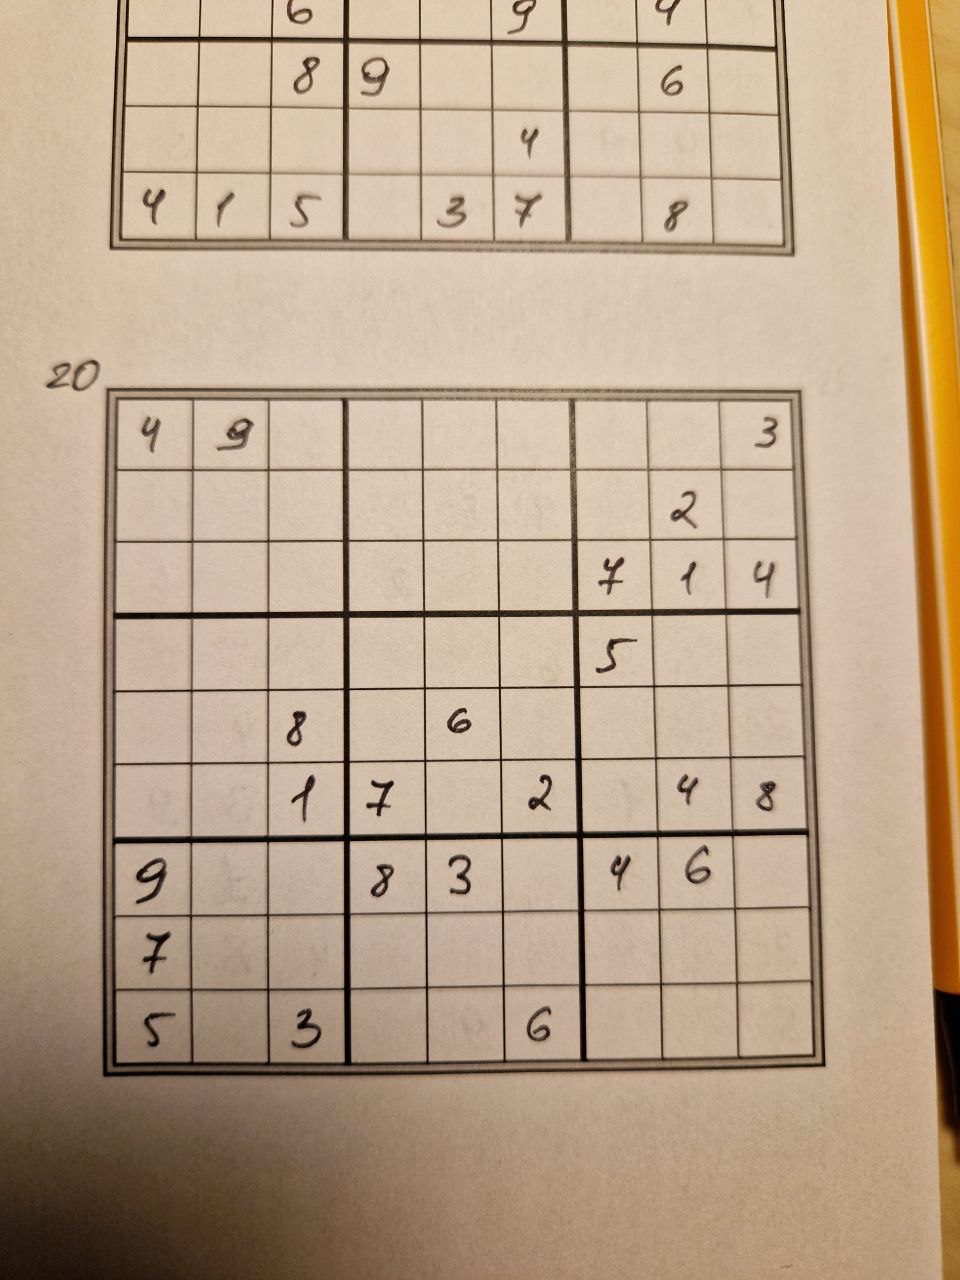 6 9 4
8 9 6
4
4 1 5 3 7 8
20
4 9 3
2
7 1 4
5
8 6
1 7 2 4 8
9 8 3 4 6
7
5 3 6